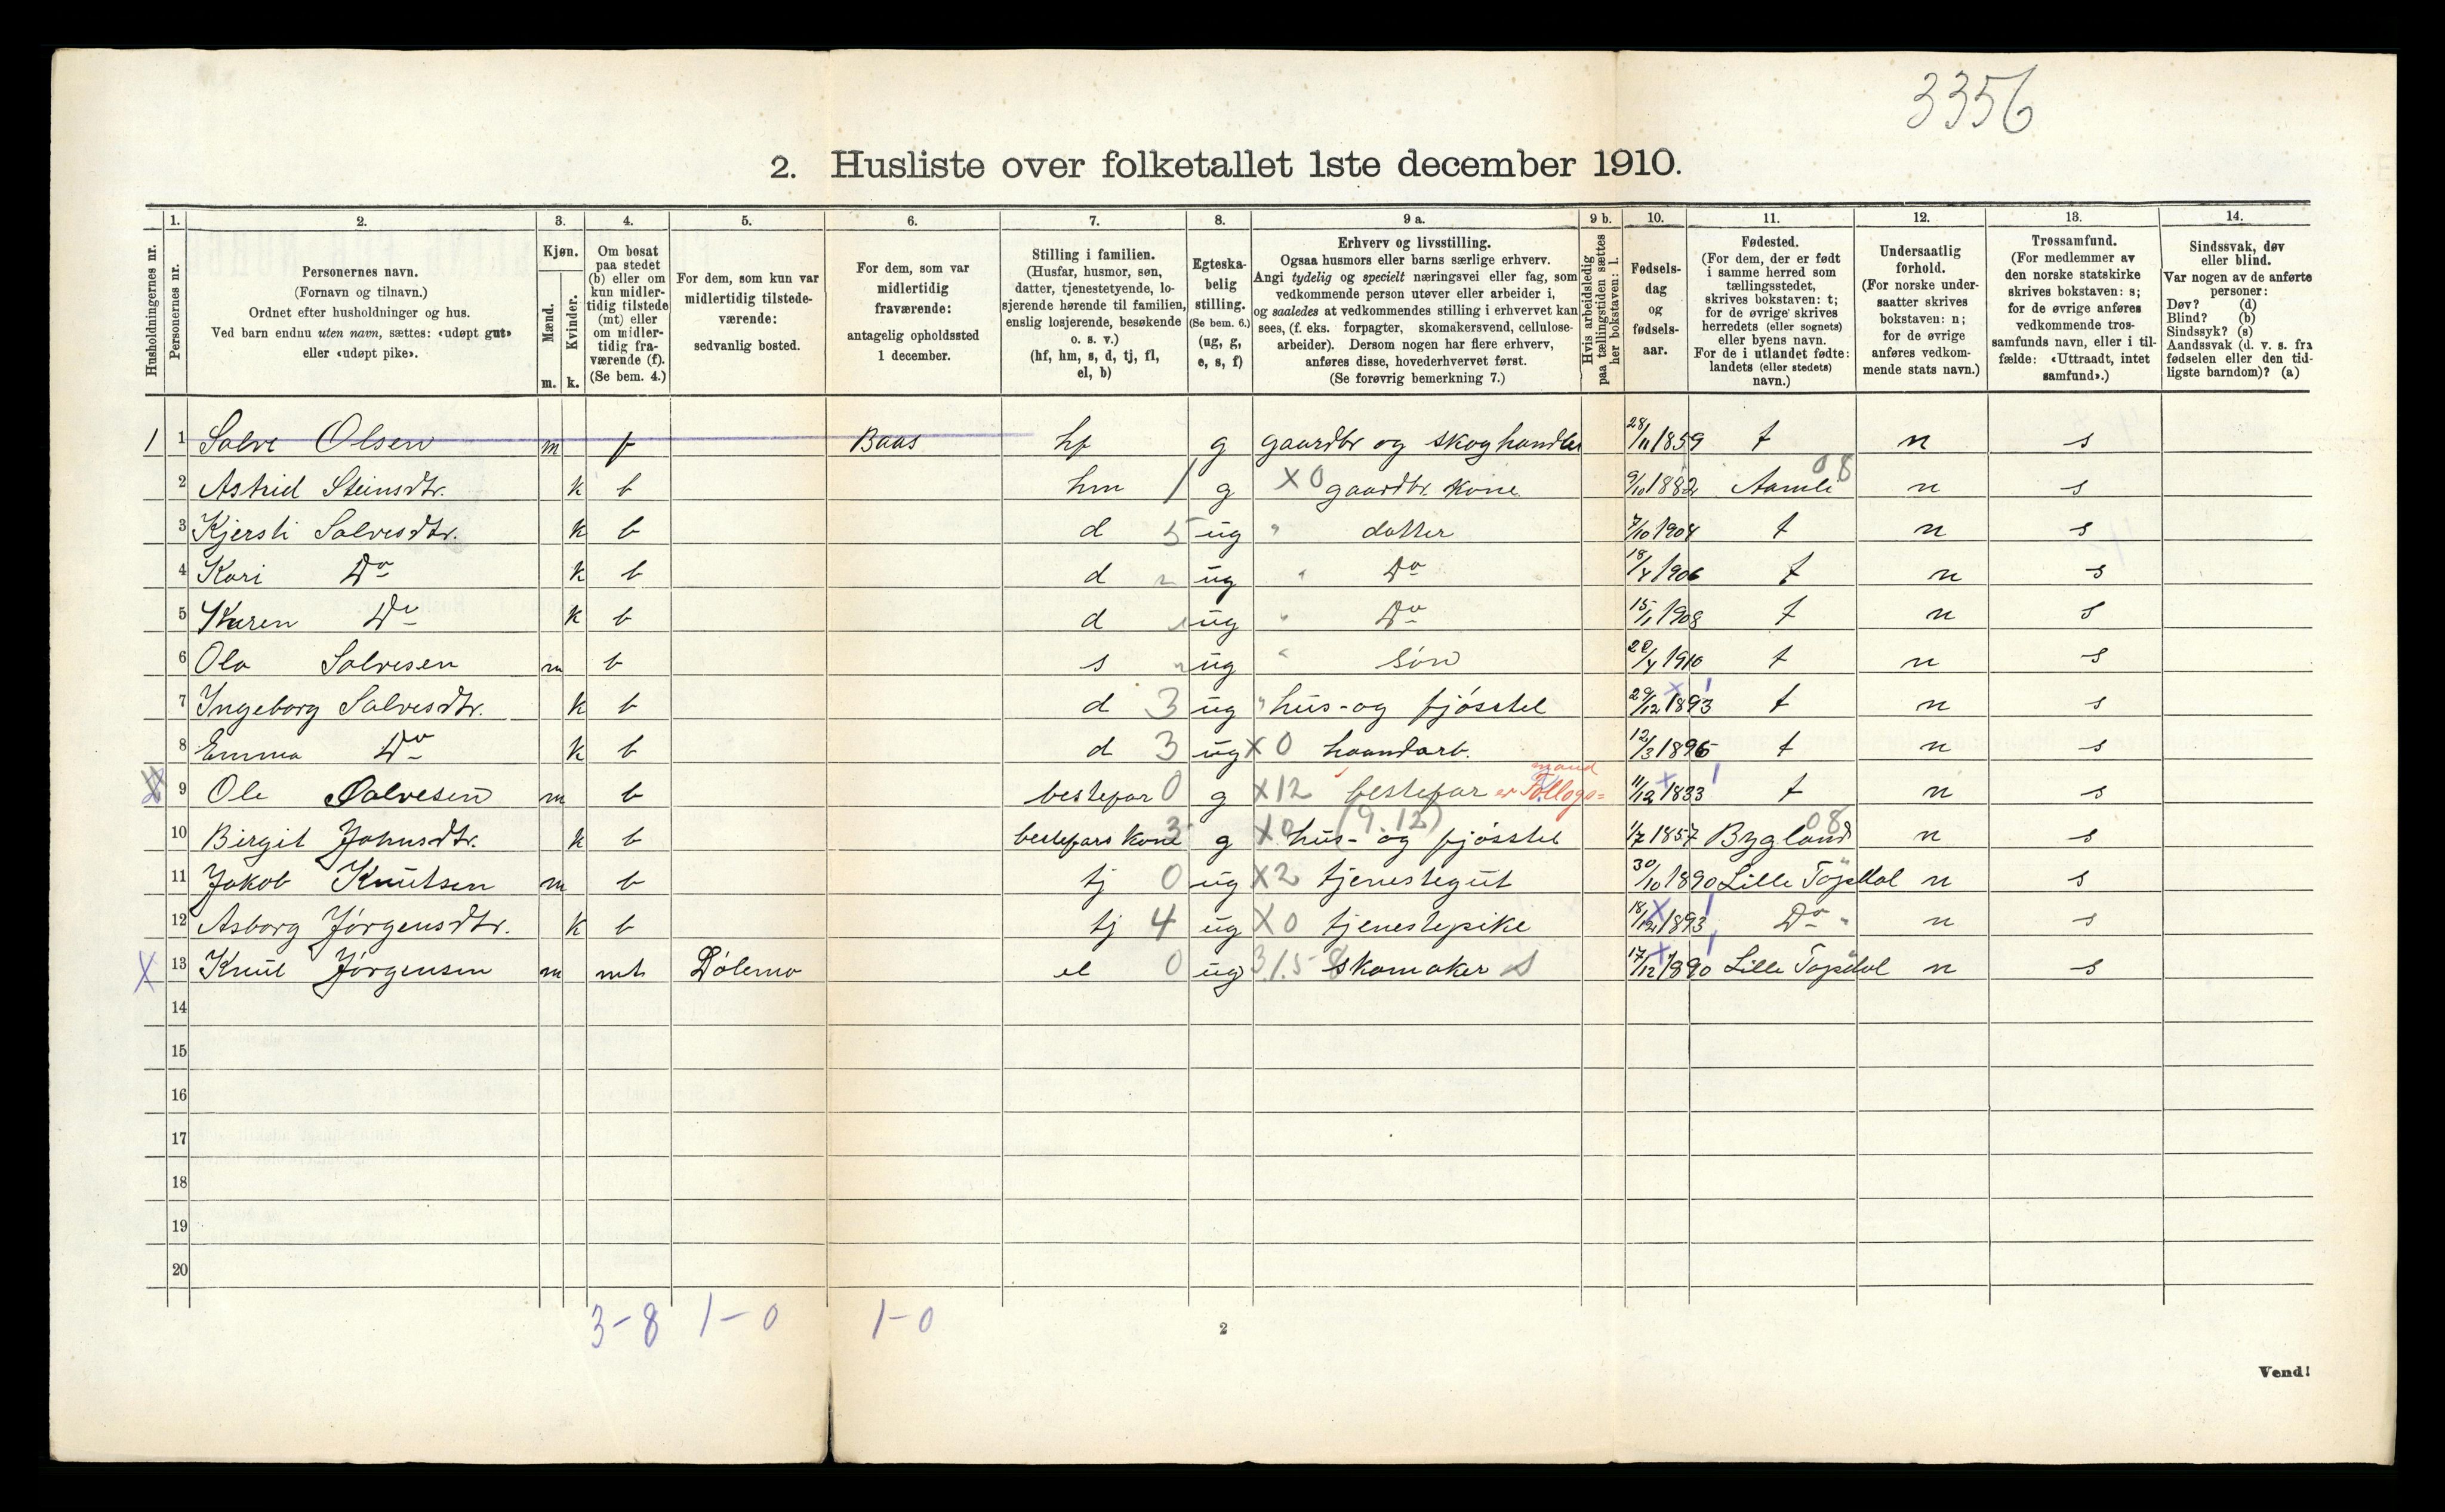 3356
2. Husliste over folketallet 1ste december 1910.
Husholdningernes nr.
1. Personernes nr.
2. Personernes navn.
(Fornavn og tilnavn.)
Ordnet efter husholdninger og hus.
Ved barn endnu uten navn, sættes: «udøpt gut»
eller «udøpt pike».
3. Kjøn.
Mænd. m.
Kvinder. k.
4. Om bosat
paa stedet
(b) eller om
kun midler-
tidig tilstede
(mt) eller
om midler-
tidig fra-
værende (f).
(Se bem. 4.)
5. For dem, som kun var
midlertidig tilstede-
værende:
sedvanlig bosted.
6. For dem, som var
midlertidig
fraværende:
antagelig opholdssted
1 december.
7. Stilling i familien.
(Husfar, husmor, søn,
datter, tjenestetyende, lo-
sjerende hørende til familien,
enslig losjerende, besøkende
o. s. v.)
(hf, hm, s, d, tj, fl,
el, b)
8. Egteska-
belig
stilling.
(Se bem. 6.)
(ug, g,
e, s, f)
9 a. Erhverv og livsstilling.
Ogsaa husmors eller barns særlige erhverv.
Angi tydelig og specielt næringsvei eller fag, som
vedkommende person utøver eller arbeider i,
og saaledes at vedkommendes stilling i erhvervet kan
sees, (f. eks. forpagter, skomakersvend, cellulose-
arbeider). Dersom nogen har flere erhverv,
anføres disse, hovederhvervet først.
(Se forøvrig bemerkning 7.)
9 b. Hvis arbeidsledig
paa tællingstiden sættes
her bokstaven: l.
10. Fødsels-
dag
og
fødsels-
aar.
11. Fødested.
(For dem, der er født
i samme herred som
tællingsstedet,
skrives bokstaven: t;
for de øvrige skrives
herredets (eller sognets)
eller byens navn.
For de i utlandet fødte:
landets (eller stedets)
navn.)
12. Undersaatlig
forhold.
(For norske under-
saatter skrives
bokstaven: n;
for de øvrige
anføres vedkom-
mende stats navn.)
13. Trossamfund.
(For medlemmer av
den norske statskirke
skrives bokstaven: s;
for de øvrige anføres
vedkommende tros-
samfunds navn, eller i til-
fælde: «Uttraadt, intet
samfund».)
14. Sindssvak, døv
eller blind.
Var nogen av de anførte
personer:
Døv? (d)
Blind? (b)
Sindssyk? (s)
Aandssvak (d. v. s. fra
fødselen eller den tid-
ligste barndom)? (a)
1 1 Salve Olsen m f Baas hf g gaardbr og skoghandler 28/11 1859 t n s
2 Astrid Steinsdtr. k b hm 1 g X 0 gaardbr. kone 9/10 1882 Aamli 08 n s
3 Kjersti Salvesdtr. k b d 5 ug " datter 7/10 1904 t n s
4 Kari Do k b d " ug " Do 18/4 1906 t n s
5 Karen Do k b d " ug " Do 15/1 1908 t n s
6 Ola Salvesen m b s " ug " søn 1910 t n s
7 Ingeborg Salvesdtr. k b d 3 ug " hus- og fjösstel 29/12 1893 t n s
8 Emma Do k b d 3 ug X 0 haandarb. 12/3 1896 t n s
9 Ole Salvesen m b bestepar 0 g X 12 bestepar er Föllogs= mand 11/12 1833 t n s
10 Birgit Johnsdtr. k b bestepars kone 3 g X 0 hus- og fjösstel (9.12) 1/7 1857 Bygland 08 n s
11 Jakob Knutsen m b tj 0 ug X 2 tjenestegut 30/10 1890 Lille Töpdal n s
12 Asborg Jørgensdtr. k b tj 4 ug X 0 tjenestepike 18/12 1893 Do " n s
X 13 Knut Jørgensen m mt Dölemo el 0 ug 31.58 skomaker S 17/12 1890 Lille Topdal n s
14
15
16
17
18
19
20
3-8 1-0 1-0
2
Vend!